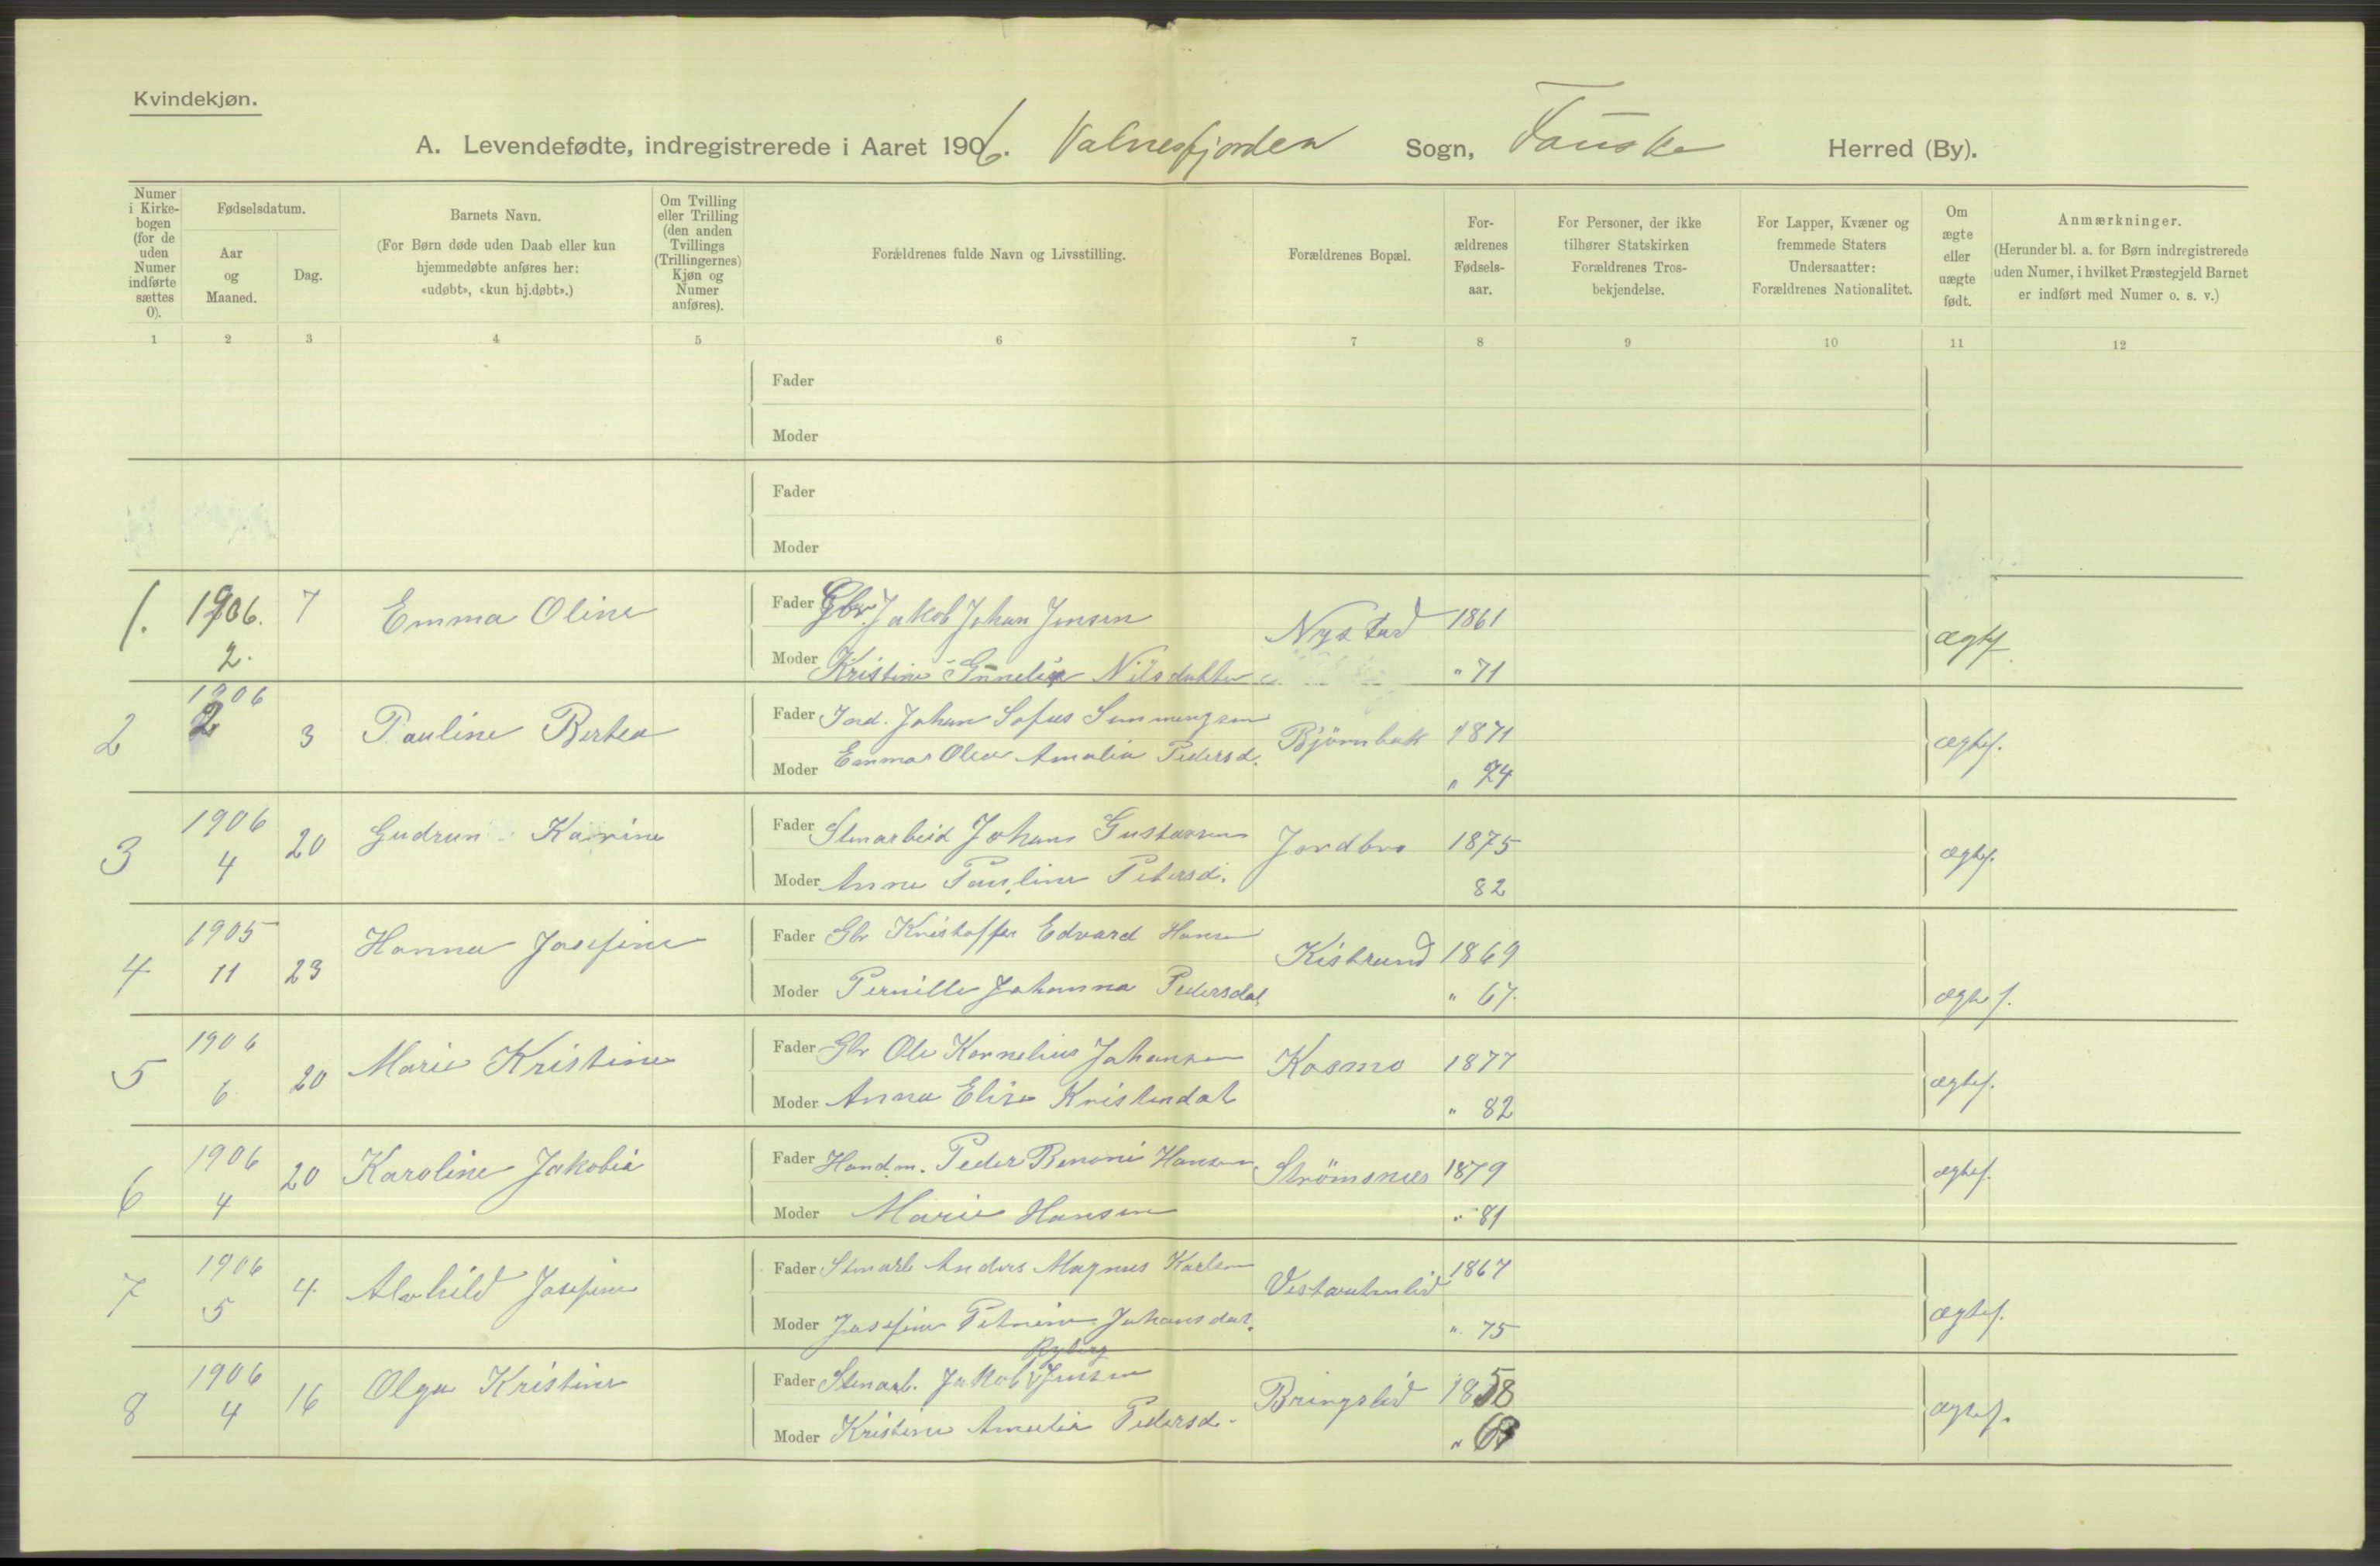 Kvindekjøn.
A. Levendefødte, indregistrerede i Aaret 1906. Valnesfjorden Sogn, Fauske Herred (By).
Numer i Kirkebogen (for de uden Numer indførte sættes 0).
Fødselsdatum.
Aar og Maaned.
Dag.
Barnets Navn.
(For Børn døde uden Daab eller kun hjemmedøbte anføres her: «udøbt», «kun hj.døbt».)
Om Tvilling eller Trilling (den anden Tvillings (Trillingernes) Kjøn og Numer anføres).
Forældrenes fulde Navn og Livsstilling.
Forældrenes Bopæl.
Forældrenes Fødselsaar.
For Personer, der ikke tilhører Statskirken Forældrenes Trosbekjendelse.
For Lapper, Kvæner og fremmede Staters Undersaatter: Forældrenes Nationalitet.
Om ægte eller uægte født.
Anmærkninger.
(Herunder bl. a. for Børn indregistrerede uden Numer, i hvilket Præstegjeld Barnet er indført med Numer o. s. v.)
1 2 3 4 5 6 7 8 9 10 11 12
Fader
Moder
Fader
Moder
1. 1906. 2. 7 Emma Oline
Fader Gbr. Jakob Johan Jensen Nystad 1861 ægtef.
Moder Kristine Nilsdatter " 71
2 1906 2 3 Pauline Bertea
Fader Ind. Johan Sofus 1871 ægtef.
Moder Emma Olea Amalia Pedersd. " 74
3 1906 4 20 Gudrun Karine
Fader Stenarbeid Johan Gustavsen Jordbro 1875 ægtef.
Moder Anne Pauline Petersd. 82
4 1905 11 23 Hanna Josefine
Fader Gbr Kristoffer Edvard Hansen Kistrand 1869 ægtef.
Moder Pernille Johanna Pedersdat " 67.
5 1906 6 20 Marie Kristine
Fader Gbr Ole Kornelius Johansen Kosmo 1877 ægtef.
Moder Anna Elise Kristendat " 82
6 1906 4 20 Karoline Jakobia
Fader Handm. Peder Benoni Hansen Strömsnes 1879 ægtef.
Moder Marie Hansen " 81
7 1906 5 4. Alvhild Josefine
Fader Stenarb Anders Magnus Karlsen 1867 ægtef.
Moder Josefine Petrine Johansdat. " 75
8 1906 4 16 Olga Kristine
Ryberg
Fader Stenarb. Jakob Jensen Bringslid 1858 ægtef.
Moder Kristine Amalia Pedersd.